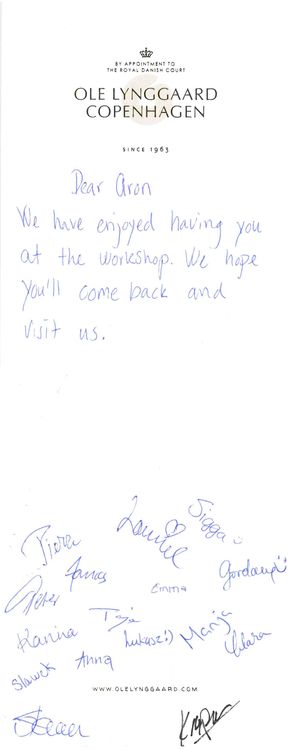 BY APPOINTMENT TO
THE ROYAL DANISH COURT
OLE LYNGGAARD
COPENHAGEN
SINCE 1963
Dear Aron
We have enjoyed having you
at the workshop. We hope
you'll come back and
visit us.
Sigga
Emma
Karina
Lukasz:)
Manja
Klara
Slawek
Anna
WWW.OLELYNGGAARD.COM